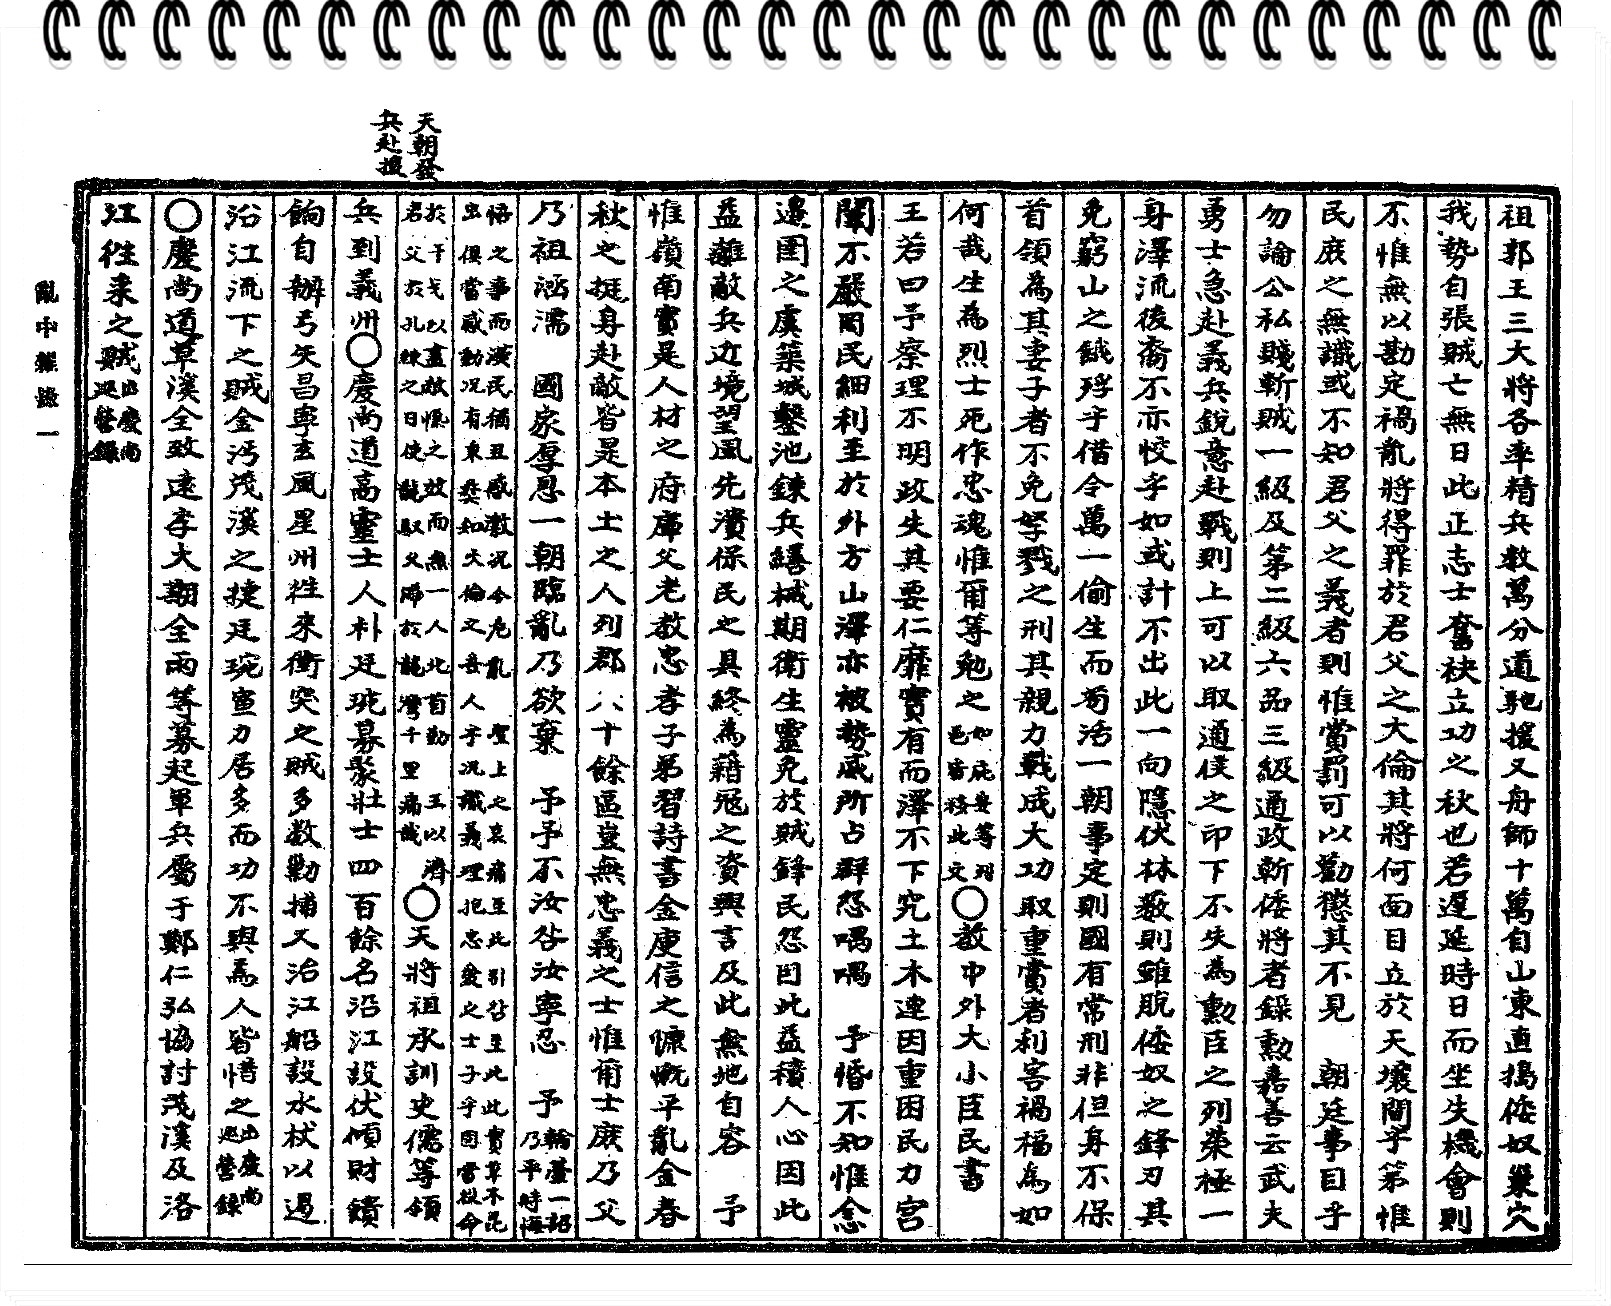 天朝發
兵赴援
祖郭王三大將各率精兵數萬分道馳援又舟師十萬自山東直搗倭奴巢穴
我勢自張賊亡無日此正志士奮袂立功之秋也若遲延時日而坐失機會則
不惟無以勘定禍亂將得罪於君父之大倫其將何面目立於天壤間乎第惟
民庶之無識或不知君父之義者則惟賞罰可以勸懲其不見 朝廷事目乎
勿論公私賤斬賊一級及第二級六品三級通政斬倭將者錄勳嘉善云武夫
勇士急赴義兵銳意赴戰則上可以取通侯之印下不失為勳臣之列榮極一
身澤流後裔不亦恔乎如或計不出此一向隱伏林藪則雖脫倭奴之鋒刃其
免窮山之餓殍乎借令萬一偷生而苟活一朝事定則國有常刑非但身不保
首領為其妻子者不免孥戮之刑其親力戰成大功取重賞者利害禍福為如
何哉生為烈士死作忠魂惟爾等勉之
如庇安等列
邑皆移此文
○敎中外大小臣民書
王若曰予察理不明政失其要仁靡實有而澤不下究土木遽因重困民力宮
闈不嚴罔民細利至於外方山澤亦被勢威所占群怨喁喁 予惛不知惟念
邊圉之虞築城鑿池鍊兵繕械期衛生靈免於賊鋒民怨因此益積人心因此
益離敵兵近境望風先潰保民之具終為藉冦之資興言及此無地自容 予
惟嶺南實是人材之府庫父老敎忠孝子弟習詩書金庾信之慷慨平亂金春
秋之挺身赴敵皆是本土之人列郡八十餘區豈無忠義之士惟爾士庶乃父
乃祖涵濡 國家厚恩一朝臨亂乃欲棄 予予不汝咎汝寧忍 予
輪臺一詔
乃平時悔
悟之事而漢民猶且感激況今危亂 聖上之哀痛至此引咎至此此實草木昆
虫俱當感動況有秉彛如大倫之無人乎況識義理抱忠愛之士子乎固當投命
於干戈以盡敵愾之效而無一人北首勤 王以濟
君父於孔棘之日使龍馭父滯於龍灣千里痛哉
○天將祖承訓史儒等領
兵到義州○慶尚道高靈士人朴廷琬募聚壯士四百餘名沿江設伏傾財饋
餉自辦弓矢昌寧玄風星州徃來衝突之賊多數勦捕又治江船設水杖以遏
沿江流下之賊金沔茂溪之捷廷琬宣力居多而功不與焉人皆惜之
出慶尚
巡營錄
○慶尚道草溪全致遠李大期全雨等募起軍兵屬于鄭仁弘協討茂溪及洛
江徃來之賊
出慶尚
巡營錄
亂中雜錄一